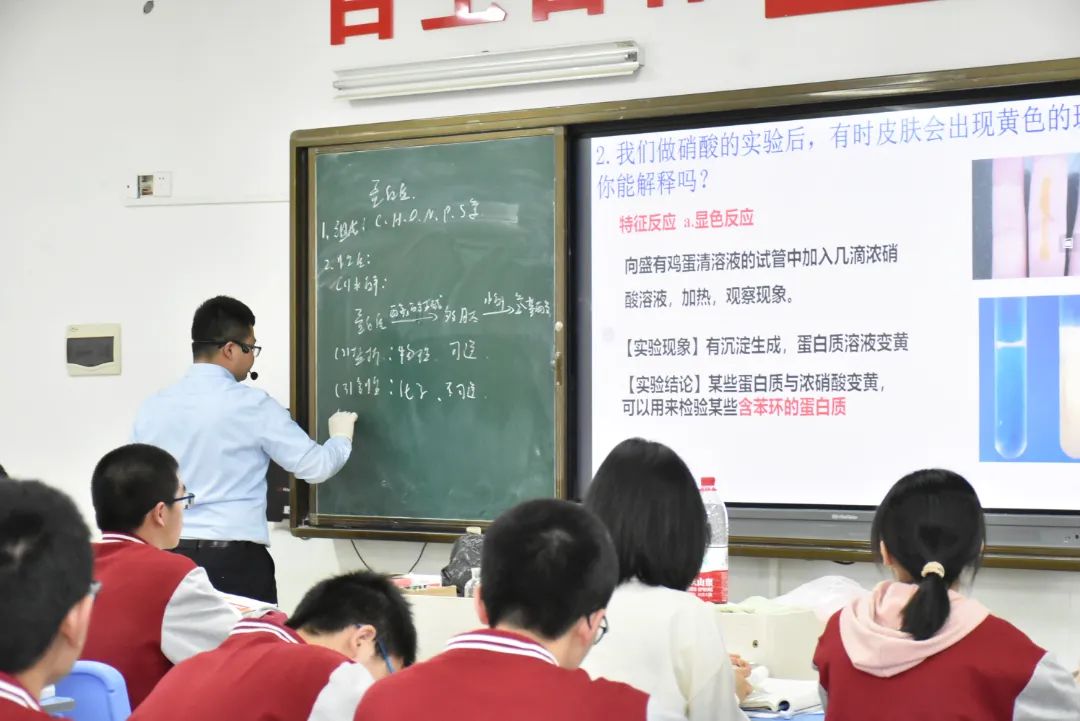 蛋白质
1、组成：C、H、O、N、P、S等
2、性质：
(1)水解：
蛋白质
多肽
(2)盐析：物理、可逆、
(3)变性：化学、不可逆、
2. 我们做硝酸的实验后，有时皮肤会出现黄色的
你能解释吗？
特征反应 a.显色反应
向盛有鸡蛋清溶液的试管中加入几滴浓硝
酸溶液，加热，观察现象。
【实验现象】有沉淀生成，蛋白质溶液变黄
【实验结论】某些蛋白质与浓硝酸变黄，
可以用来检验某些含苯环的蛋白质